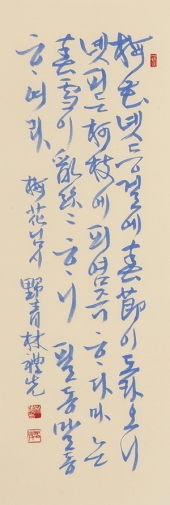 梅花 녯 등걸에 春節이 도라오니
녯 피든 柯枝에 피염즉 ᄒᆞ다마는
春雪이 亂紛紛 ᄒᆞ니 필동말동
ᄒᆞ여라 梅花님 시 野靑 林禮先